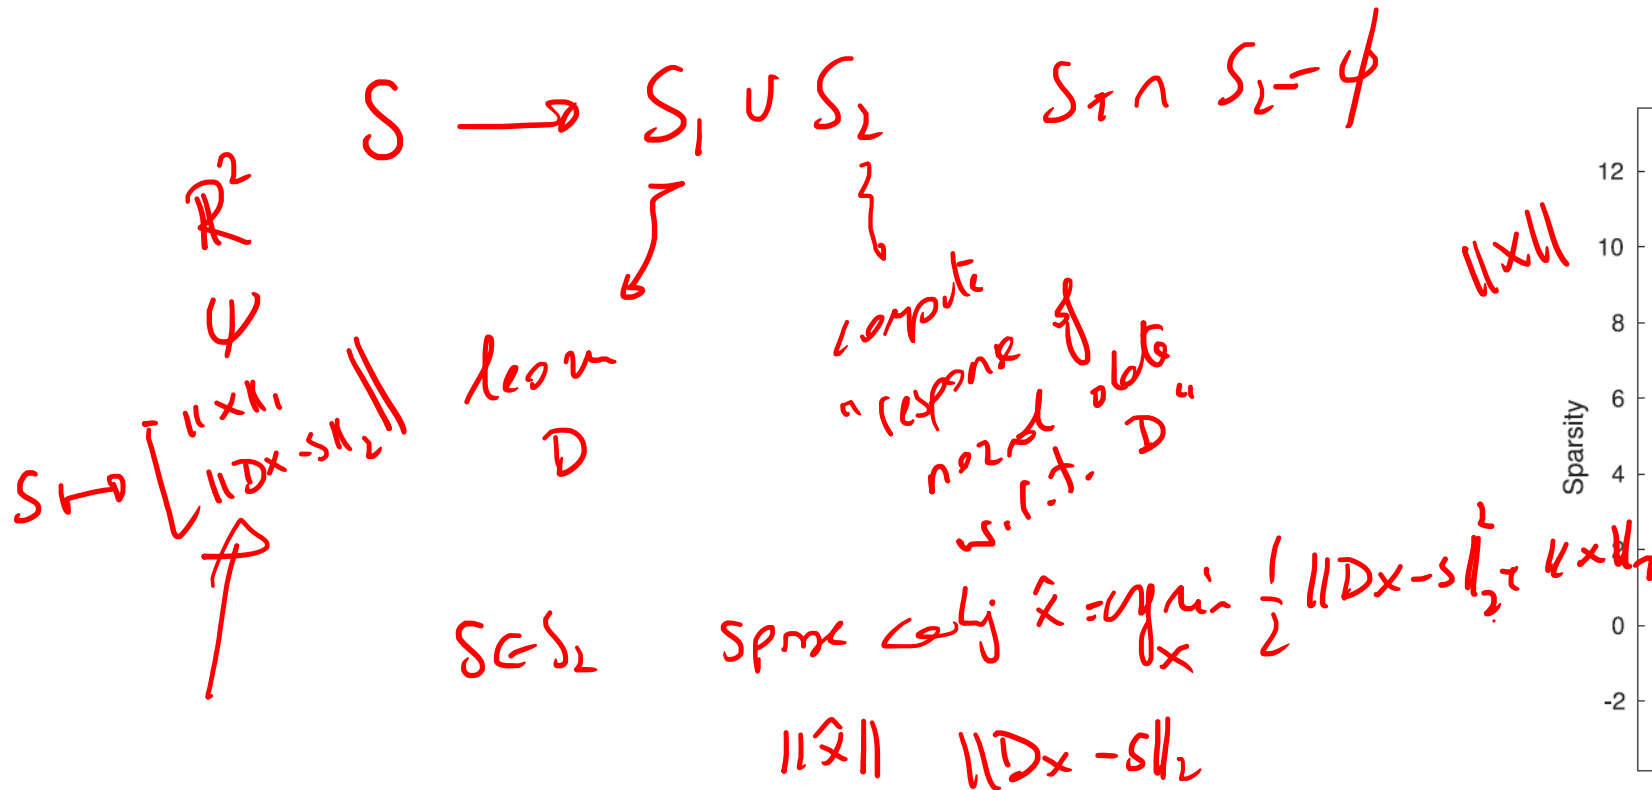 S → S₁ ∪ S₂ S₁ ∩ S₂ = ϕ
ℝ²
ψ
learn
D
compute
"response of
normal data
w.r.t. D"
‖x‖
S ↦ [‖x‖₁
‖Dx - s‖₂] ‖
s ∈ S₂ sparse coding x̂ = argmin_x 1/2 ‖Dx - s‖₂² + ‖x‖₁
‖x̂‖ ‖Dx - s‖₂
Sparsity
12
10
8
6
4
0
-2